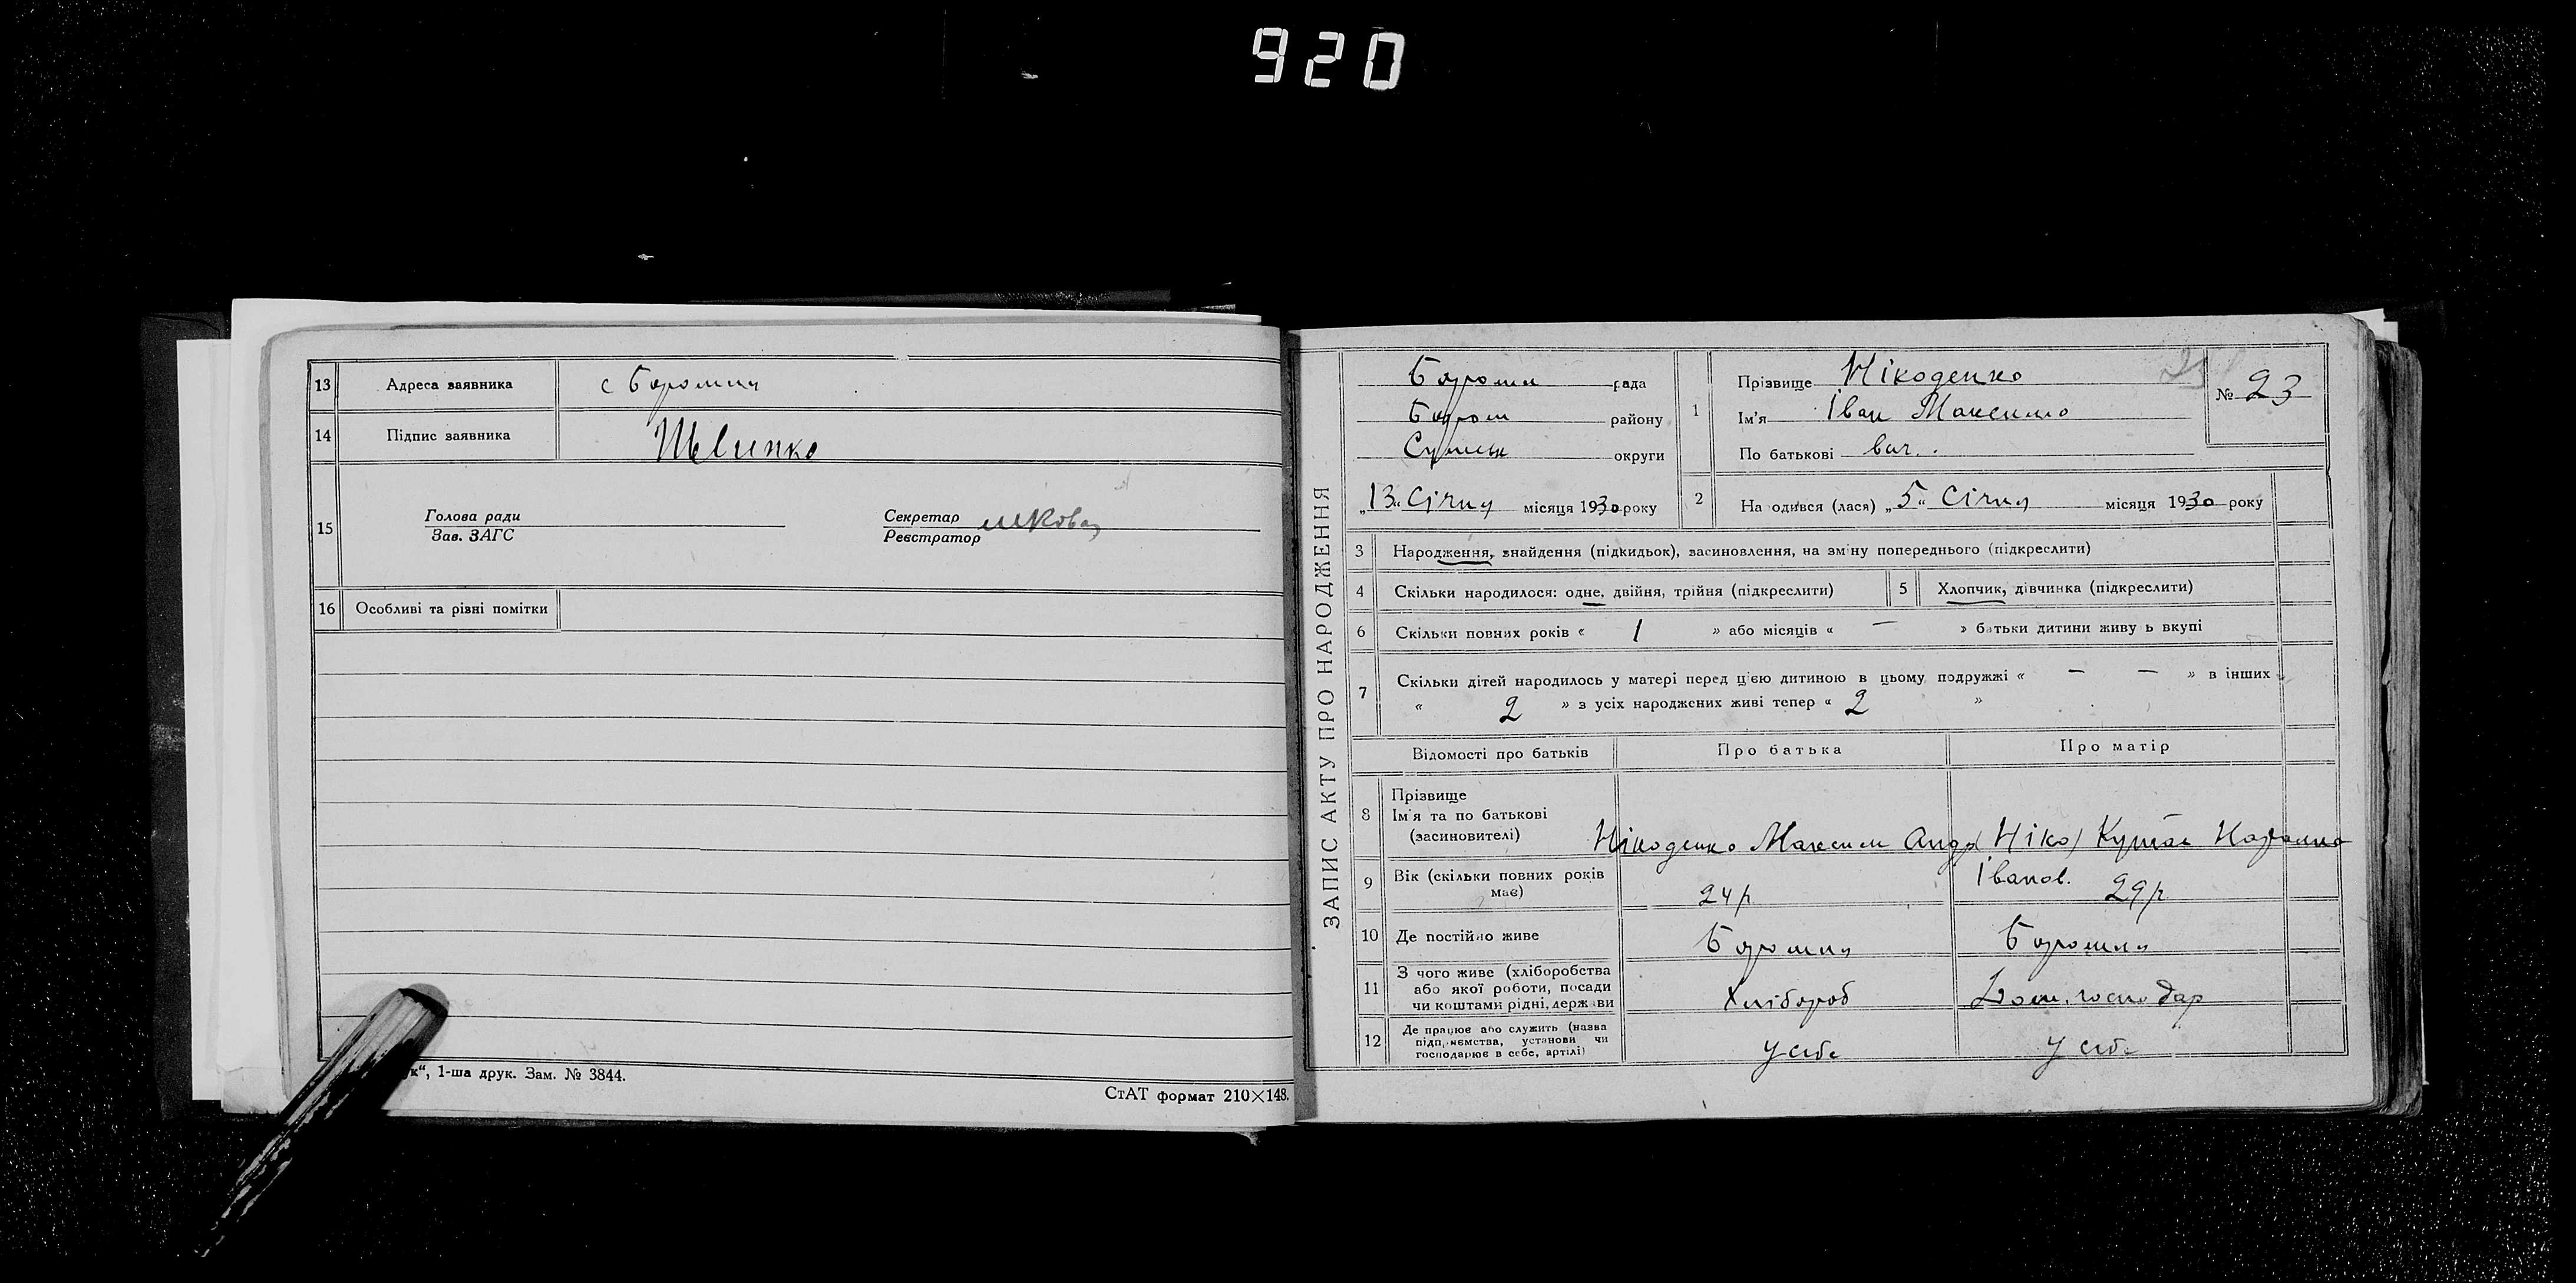 920
13 Адреса заявника с Боромля
14 Підпис заявника
15 Голова ради
Зав. ЗАГС
Секретар
Реєстратор
16 Особливі та різні помітки
1-ша друк. Зам. № 3844.
СтАТ формат 210×148.
ЗАПИС АКТУ ПРО НАРОДЖЕННЯ
Боромл рада
Бором району
Сумськ округи
„13“ Січня місяця 1930 року
1 Прізвище Нікоденко
Ім'я Іван Максимо
По батькові вич.
№ 23
2 На одився (лася) „5“ Січня місяця 1930 року
3 Народження, знайдення (підкидьок), засиновлення, на зміну попереднього (підкреслити)
4 Скільки народилося: одне, двійня, трійня (підкреслити)
5 Хлопчик, дівчинка (підкреслити)
6 Скільки повних років « 1 » або місяців « — » батьки дитини живу ь вкупі
7 Скільки дітей народилось у матері перед цією дитиною в цьому подружжі « — — » в інших
« 2 » з усіх народжених живі тепер « 2 »
Відомості про батьків
Про батька
Про матір
8 Прізвище
Ім'я та по батькові
(засиновителі)
Нікоденко Максим Анд
Іванов.
9 Вік (скільки повних років
має)
24 р
29 р
10 Де постійно живе
Боромля
Боромля
11 З чого живе (хліборобства
або якої роботи, посади
чи коштами рідні, держави
Хлібороб
Дом. господар
12 Де працює або служить (назва
підприємства, установи чи
господарює в себе, артілі)
У себе
У себе